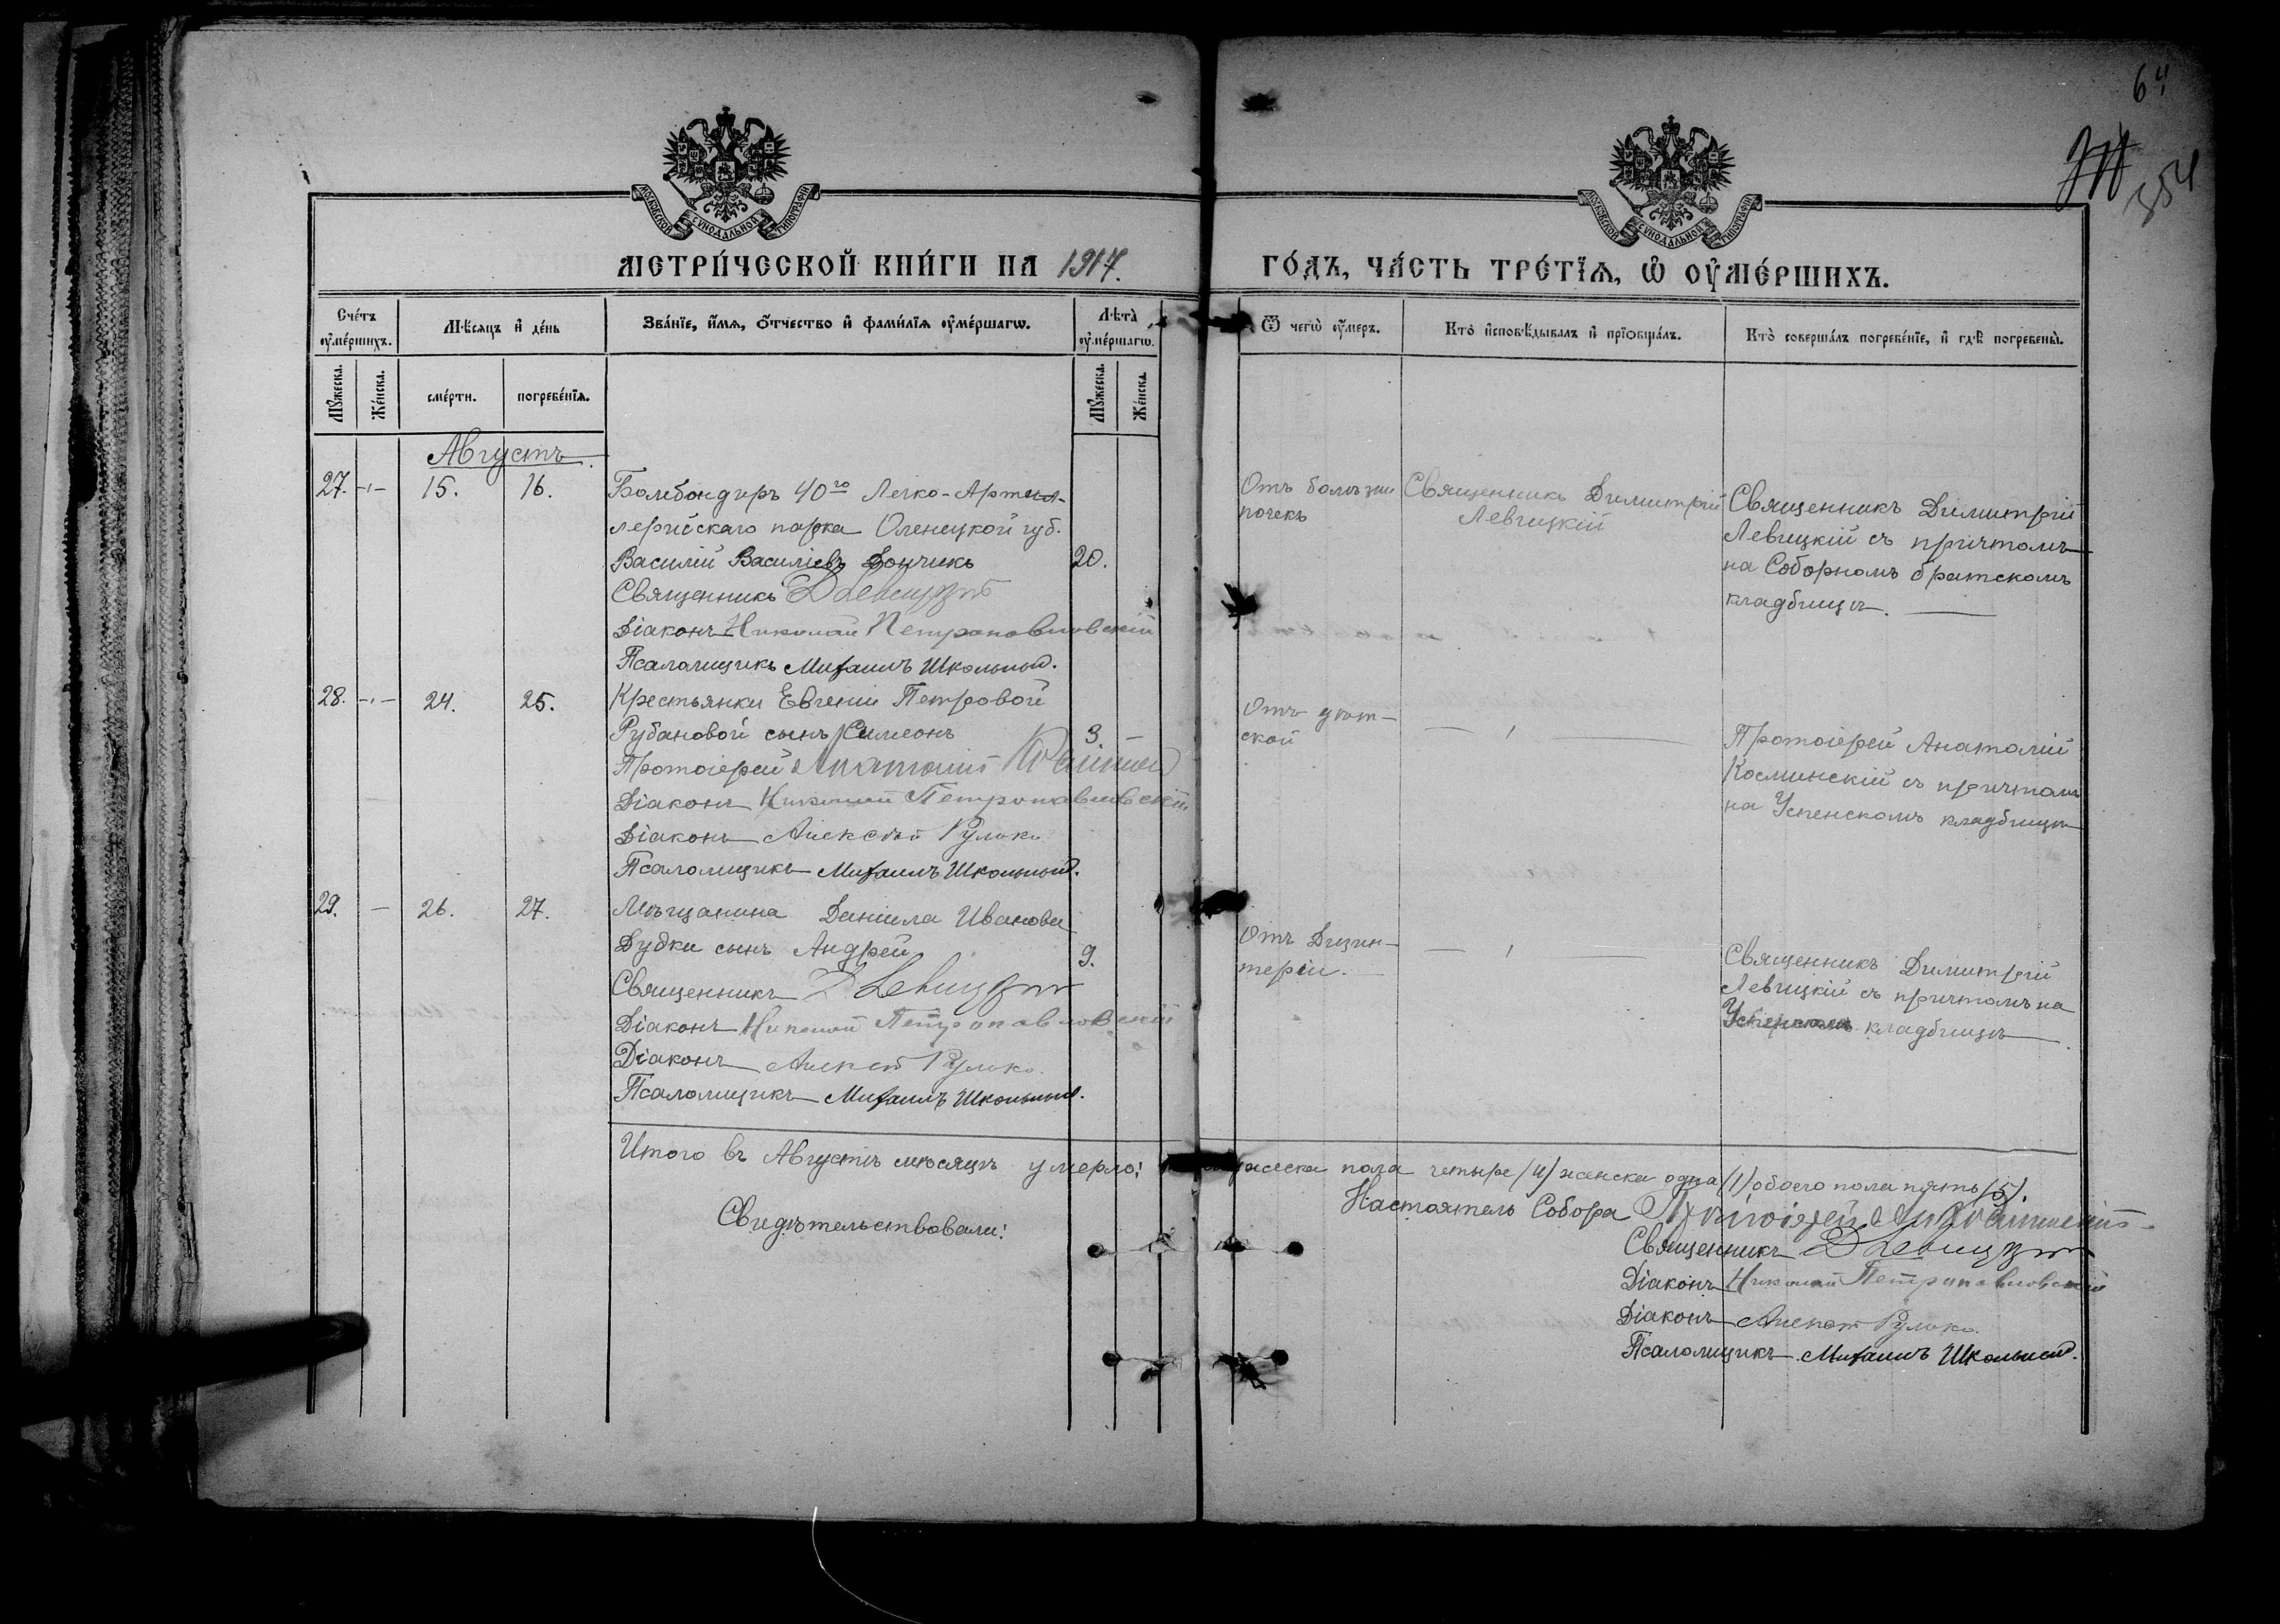 64
354
МОСКОВСКОЙ СѴНОДАЛЬНОЙ ТИПОГРАФІИ
МОСКОВСКОЙ СѴНОДАЛЬНОЙ ТИПОГРАФІИ
МЕТРИ́ЧЕСКОЙ КНИ́ГИ НА 1917.
ГО́ДЪ, ЧА́СТЬ ТРЕ́ТЇѦ, Ѡ҆ ОУ҆МЕ́РШИХЪ.
Сче́тъ оу҆ме́ршихъ.
Мѣ́сяцъ и҆ де́нь
Зва́нїе, и҆́мѧ, ѻ҆́тчество и҆ фами́лїѧ оу҆ме́ршагѡ.
Лѣта̀ оу҆ме́ршагѡ.
Ѿ чегѡ̀ оу҆́меръ.
Кто̀ и҆сповѣ́дывалъ и҆ прїѡбща́лъ.
Кто̀ соверша́лъ погребе́нїе, и҆ гдѣ̀ погребены̀.
Мꙋ́жеска. Же́нска. сме́рти. погребе́нїѧ. Мꙋ́жеска. Же́нска.
Августъ.
27. -,,- 15. 16. Бомбондиръ 40го Легко-Артил-
лерійскаго парка Оленецкой губ.
Василій Василіевъ Дончикъ 20.
Священникъ Д Левицкій
Діаконъ Николай Петропавловскій
Псаломщикъ Михаилъ Школьный.
Отъ болѣзни
почекъ
Священникъ Димитрій
Левицкій
Священникъ Димитрій
Левицкій съ причтомъ
на Соборномъ братскомъ
кладбищѣ.
28. -,,- 24. 25. Крестьянки Евгеніи Петровой
Рубановой сынъ Симеонъ 3.
Протоіерей Анатолій
Діаконъ Николай Петропавловскій
Діаконъ Алексѣй
Псаломщикъ Михаилъ Школьный.
Отъ дѣт-
ской
Протоіерей Анатолій
Косминскій съ причтомъ
на Успенскомъ кладбищѣ
29. — 26. 27. Мѣщанина Даніила Иванова
Дудки сынъ Андрей 9.
Священникъ Д Левицкій
Діаконъ Николай Петропавловскій
Діаконъ Алексѣй
Псаломщикъ Михаилъ Школьный.
Отъ Дизин-
теріи.
Священникъ Димитрій
Левицкій съ причтомъ на
Успенскомъ кладбищѣ
Итого въ Августѣ мѣсяцѣ умерло: мужеска пола четыре /4/ женска одна /1/ обоего пола пять /5/.
Свидѣтельствовали:
Настоятель Собора Протоіерей
Священникъ Д Левицкій
Діаконъ Николай Петропавловскій
Діаконъ Алексѣй
Псаломщикъ Михаилъ Школьный.